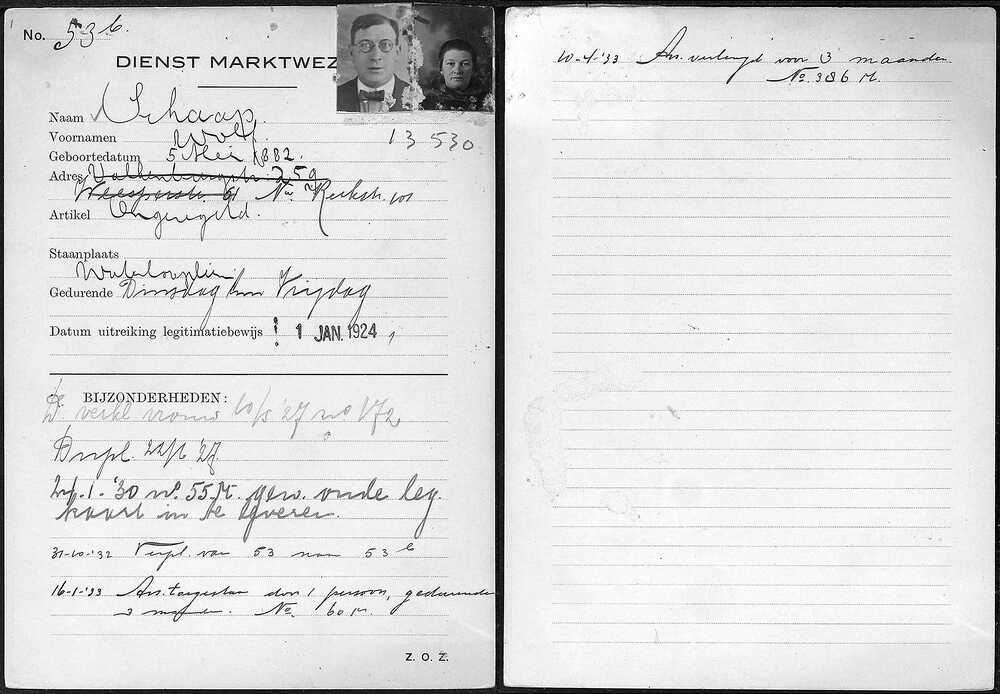 No. 53 b.
DIENST MARKTWEZ
Naam Schaap.
Voornamen Wolf.
13530
Geboortedatum 5 Mei 1882.
Adres Valkenburgstr. 259
Weesperstr. 61 Nw. Kerkstr. 101
Artikel Ongeregeld.
Staanplaats
Waterlooplein
Gedurende Dinsdag t/m Vrijdag
Datum uitreiking legitimatiebewijs 1 JAN. 1924
BIJZONDERHEDEN:
D. verkl vrouw 10/5 '27 no 172
Dupl. 22/6 '27
24-1-'30 no. 55 M. gew. oude leg.
kaart in te leveren.
31-10-'32 Verpl. van 53 naar 53 b
16-1-'33 Ass. toegestaan door 1 persoon, gedurende
3 maanden. No. 60 M.
Z. O. Z.
10-4-'33 Ass. verlengd voor 3 maanden.
No. 386 M.